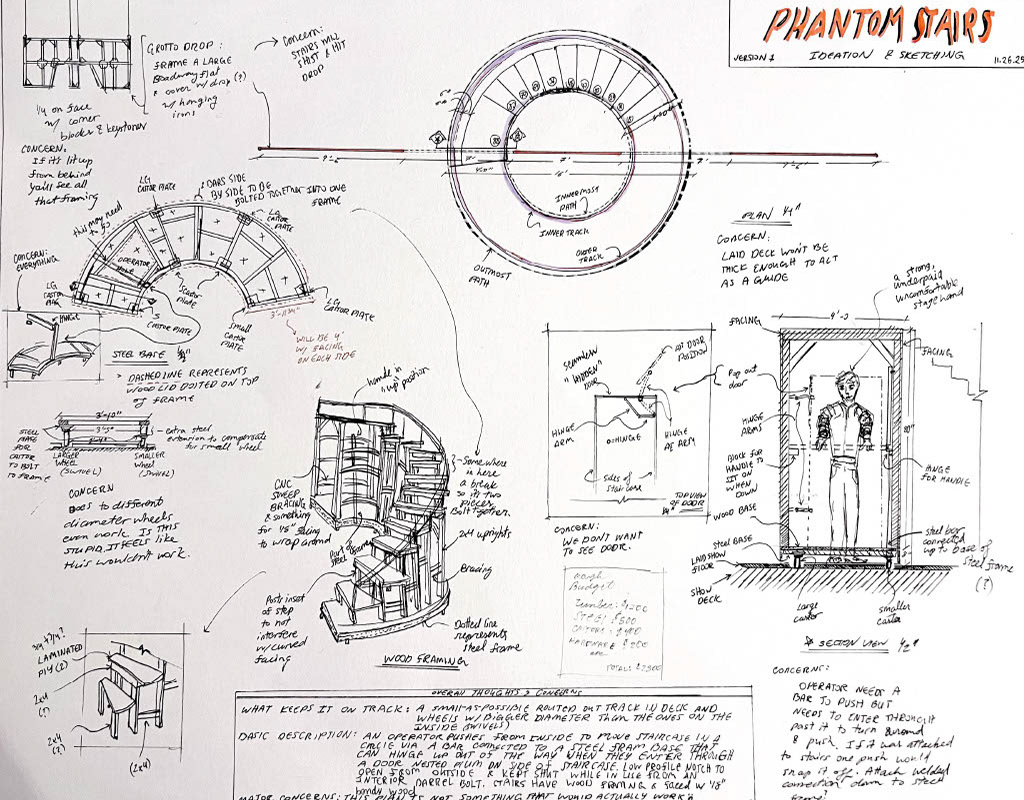 PHANTOM STAIRS
VERSION 1
IDEATION & SKETCHING
11.26.25
GROTTO DROP:
FRAME A LARGE
Broadway flat
& cover w/ drop (?)
w/ hanging
irons
Concern:
STAIRS WILL
SHIFT & HIT
DROP
1/4 on face
w/ corner
blocks & keystones
CONCERN:
If it's lit up
from behind
you'll see all
that framing
INNERMOST
PATH
INNER TRACK
OUTER
TRACK
OUTMOST
PATH
PLAN 1/4"
CONCERN:
LAID DECK WON'T BE
THICK ENOUGH TO ACT
AS A GUIDE
LG
CASTOR PLATE
CARS SIDE
BY SIDE TO BE
BOLTED TOGETHER INTO ONE
FRAME
LG
CASTOR
PLATE
this may need
to go
OPERATOR
HOLE
CONCERN:
EVERYTHING
LG
CASTOR
PLATE
S
CASTOR PLATE
SMALL
CASTOR
PLATE
LG
CASTOR PLATE
3'-11 3/4"
WILL BE 4'
W/ FACING
ON EACH SIDE
HINGE
STEEL BASE 1/2"
DASHED LINE REPRESENTS
WOOD LID BOLTED ON TOP
OF FRAME
3'-10"
STEEL
BASE
FOR
CASTOR
TO BOLT
TO FRAME
LARGER
WHEEL
(SWIVEL)
SMALLER
WHEEL
(SWIVEL)
extra steel
extension to compensate
for small wheel
CONCERN
DOES TO DIFFERENT
diameter wheels
even work. IS THIS
STUPID, IT FEELS LIKE
this wouldn't work.
handle in
"up" position
CNC
SWEEP
BRACING
& something
for 1/8" facing
to wrap around
Part of
steel frame
Somewhere
in here
a break
so it's two
pieces
Bolt together.
2x4 uprights
Bracing
Posts inset
of step
to not
interfere
w/ curved
facing
Dotted line
represents
steel frame
WOOD FRAMING
LAMINATED
PLY (?)
2x4
(?)
2x4
(?)
(2x4)
SEAMLESS
"HIDDEN"
DOOR
OUT DOOR
POSITION
Pop out
door
HINGE
ARM
HINGE
ARM
Sides of
staircase
TOP VIEW
OF DOOR
CONCERN:
WE DON'T WANT
TO SEE DOOR.
rough
Budget
Lumber: $1200
STEEL: $500
CASTORS: $400
HARDWARE $200
TOTAL: $2300
a strong,
underpaid
uncomfortable
stagehand
FACING
4'-0
FACING
HINGE
ARMS
BLOCK FOR
HANDLE TO
SIT ON
WHEN
DOWN
WOOD BASE
STEEL BASE
LAID SHOW
FLOOR
SHOW
DECK
HINGE
FOR HANDLE
steel bar
connected
up to base of
steel frame
(?)
large
caster
smaller
caster
SECTION VIEW 1/2"
CONCERNS:
OPERATOR NEEDS A
BAR TO PUSH BUT
NEEDS TO ENTER THROUGH
past it to turn around
& push. If it was attached
to stairs one push would
snap it off. Attach welded
connection down to steel
frame?
OVERALL THOUGHTS & CONCERNS
WHAT KEEPS IT ON TRACK: A SMALL-AS-POSSIBLE ROUTED OUT TRACK IN DECK AND
WHEELS W/ BIGGER DIAMETER THAN THE ONES ON THE
INSIDE (SWIVELS)
BASIC DESCRIPTION: AN OPERATOR PUSHES FROM INSIDE TO MOVE STAIRCASE IN A
CIRCLE VIA A BAR CONNECTED TO A STEEL FRAM BASE THAT
CAN HINGE UP OUT OF THE WAY WHEN THEY ENTER THROUGH
A DOOR NESTED FLUSH ON SIDE OF STAIRCASE. LOW PROFILE NOTCH TO
OPEN FROM OUTSIDE & KEPT SHUT WHILE IN USE FROM AN
INTERIOR BARREL BOLT. STAIRS HAVE WOOD FRAMING & FACED W/ 1/8"
bendy wood
MAJOR CONCERNS: THIS PLAN IS NOT SOMETHING THAT WOULD ACTUALLY WORK &